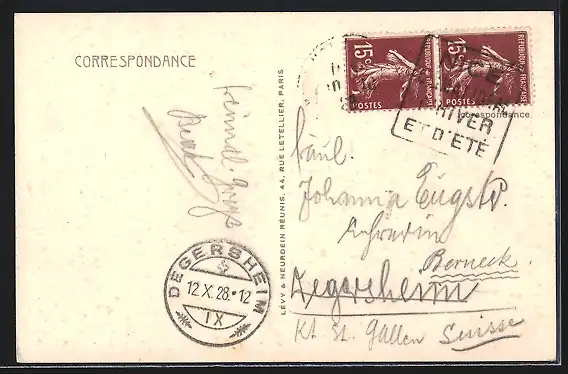 CORRESPONDANCE
LÉVY & NEURDEIN RÉUNIS, 44, RUE LETELLIER, PARIS
15c
REPUBLIQUE FRANÇAISE
POSTES
15c
REPUBLIQUE FRANÇAISE
POSTES
NICE
HIVER
ET D'ÉTÉ
Correspondance
Johanna Eugstr.
Lehrerin
Berneck
Degersheim
Kt. St. Gallen Suisse
DEGERSHEIM
12.X.28.-12
IX